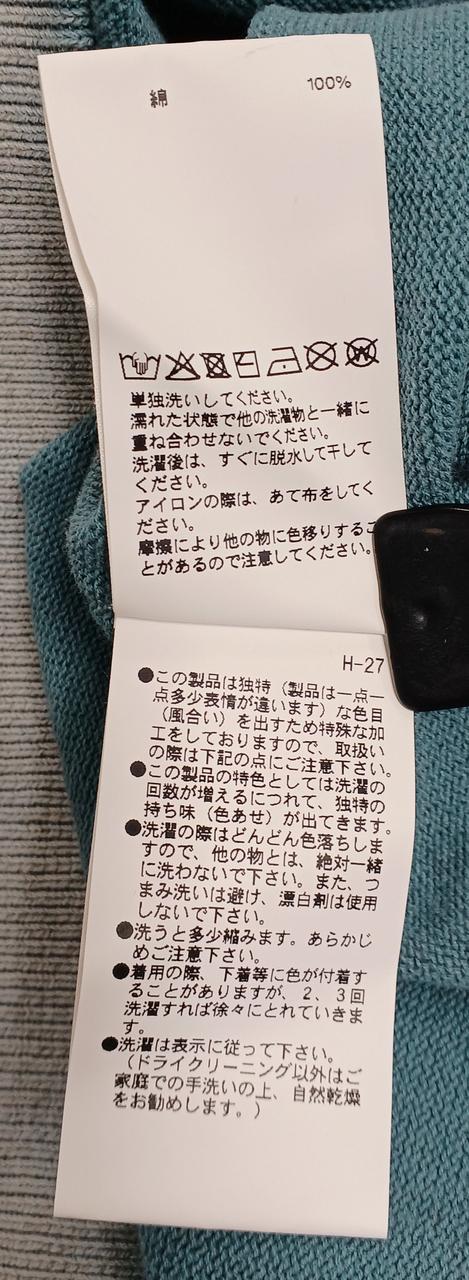 綿 100%
単独洗いしてください。
濡れた状態で他の洗濯物と一緒に
重ね合わせないでください。
洗濯後は、すぐに脱水して干して
ください。
アイロンの際は、あて布をしてく
ださい。
摩擦により他の物に色移りするこ
とがあるので注意してください。
H-27
●この製品は独特（製品は一点一
点多少表情が違います）な色目
（風合い）を出すため特殊な加
工をしておりますので、取扱い
の際は下記の点にご注意下さい。
●この製品の特色としては洗濯の
回数が増えるにつれて、独特の
持ち味（色あせ）が出てきます。
●洗濯の際はどんどん色落ちしま
すので、他の物とは、絶対一緒
に洗わないで下さい。また、つ
まみ洗いは避け、漂白剤は使用
しないで下さい。
●洗うと多少縮みます。あらかじ
めご注意下さい。
●着用の際、下着等に色が付着す
ることがありますが、2、3回
洗濯すれば徐々にとれていきま
す。
●洗濯は表示に従って下さい。
（ドライクリーニング以外はご
家庭での手洗いの上、自然乾燥
をお勧めします。）